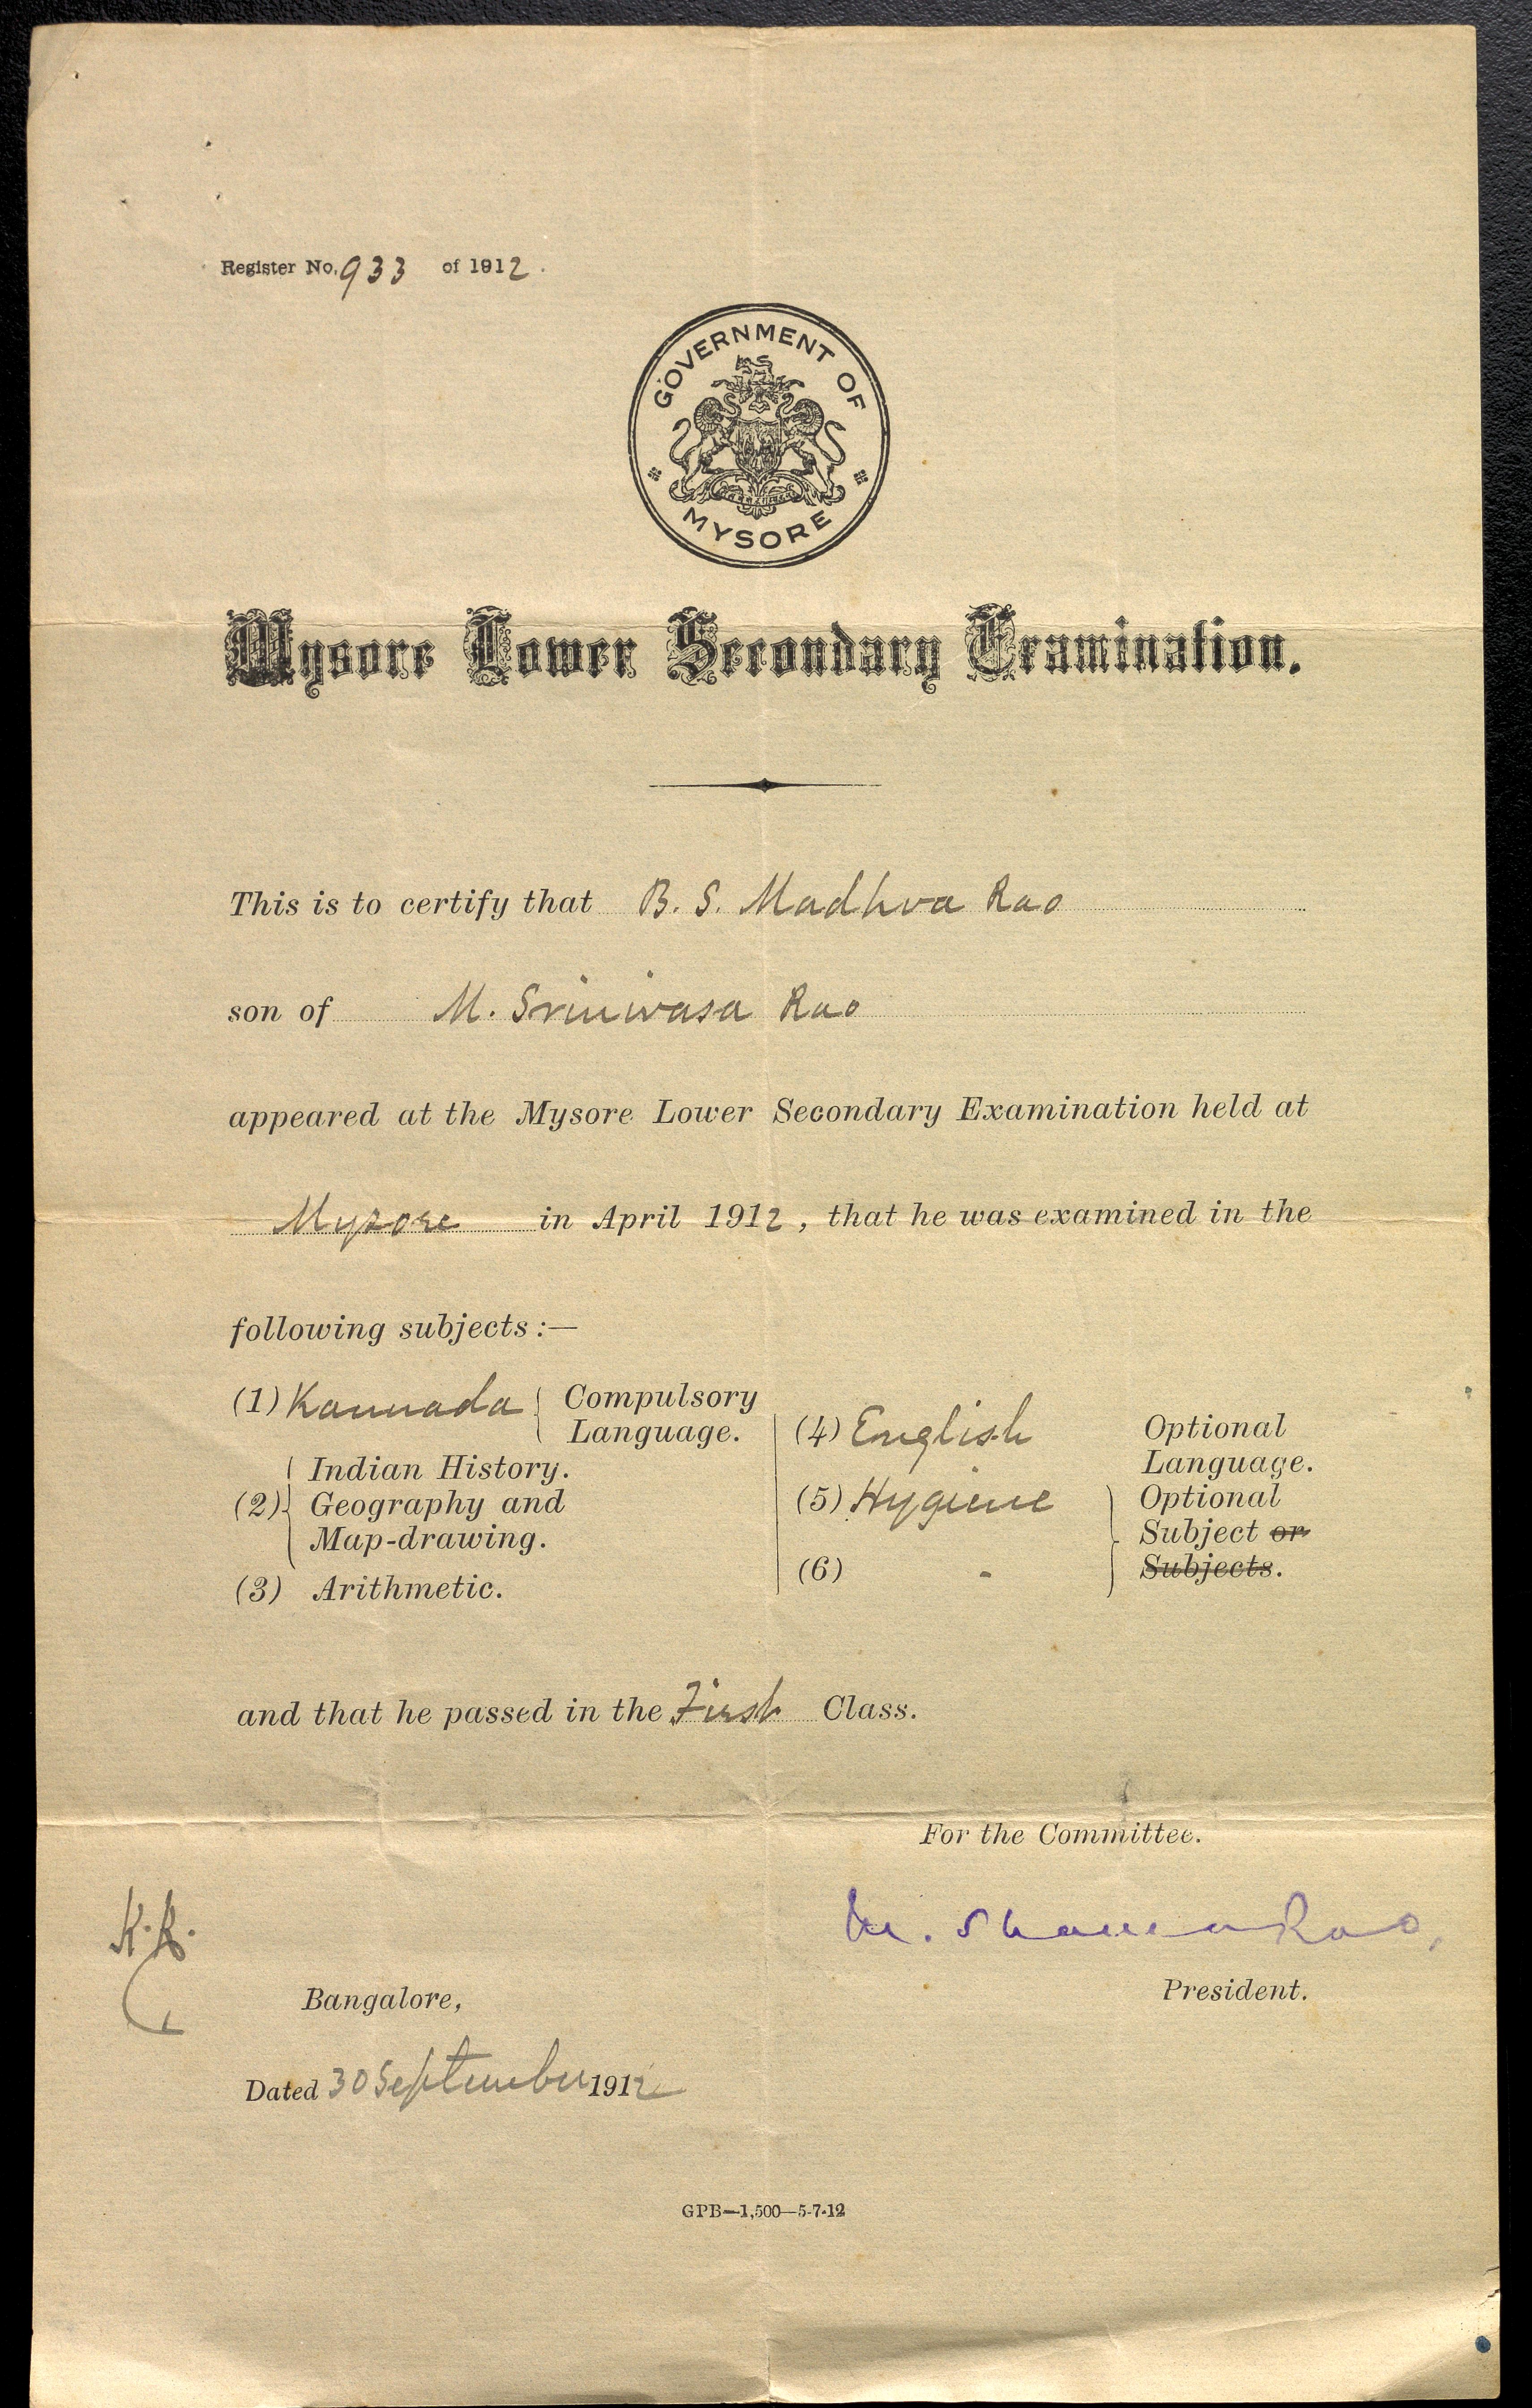 Register No. 933 of 1912.
GOVERNMENT OF
MYSORE
Mysore Lower Secondary Examination.
This is to certify that B. S. Madhva Rao
son of M. Srinivasa Rao
appeared at the Mysore Lower Secondary Examination held at
Mysore in April 1912, that he was examined in the
following subjects :—
(1) Kannada { Compulsory
Language.
(2) { Indian History.
Geography and
Map-drawing.
(3) Arithmetic.
(4) English Optional
Language.
(5) Hygiene } Optional
Subject or
(6) - Subjects.
and that he passed in the First Class.
For the Committee.
K. R.
M. Shama Rao,
Bangalore,
President.
Dated 30 September 1912
GPB—1,500—5-7-12